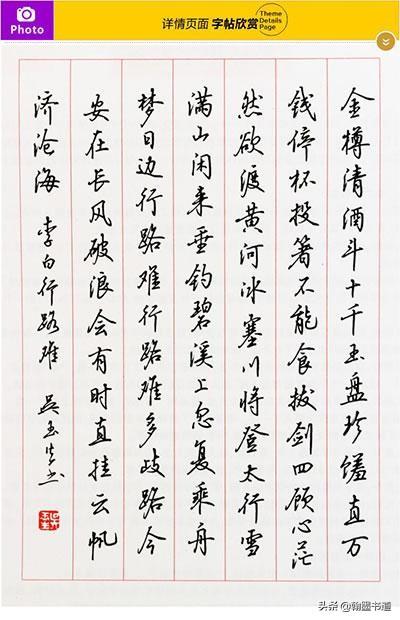 Photo
详情页面 字帖欣赏
Theme
Details
Page
金樽清酒斗十千玉盘珍馐直万
钱停杯投箸不能食拔剑四顾心茫
然欲渡黄河冰塞川将登太行雪
满山闲来垂钓碧溪上忽复乘舟
梦日边行路难行路难多歧路今
安在长风破浪会有时直挂云帆
济沧海 李白行路难 吴玉生书
头条 @翰墨书道